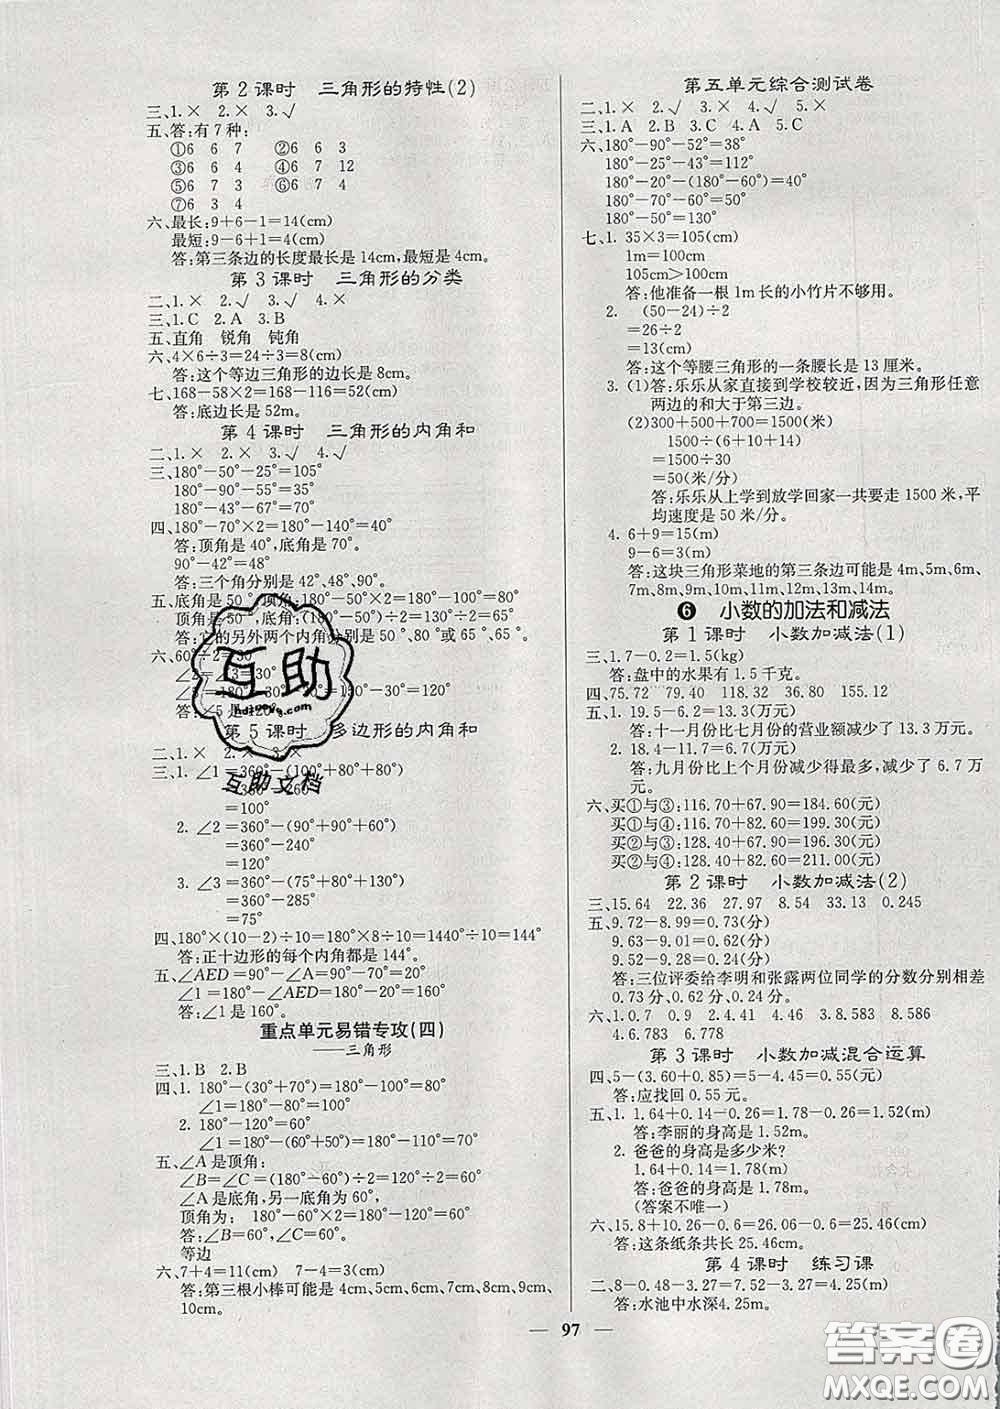 第2课时　三角形的特性(2)
三、1.×　2.×　3.√
五、答:有7种:
①6　6　7　　②6　6　3
③6　6　4　　④6　7　12
⑤6　7　3　　⑥6　7　4
⑦6　3　4
六、最长:9+6-1=14(cm)
最短:9-6+1=4(cm)
答:第三条边的长度最长是 14cm,最短是 4cm。
第3课时　三角形的分类
二、1.×　2.√　3.√　4.×
三、1.C　2.A　3.B
五、直角　锐角　钝角
六、4×6÷3=24÷3=8(cm)
答:这个等边三角形的边长是 8cm。
七、168-58×2=168-116=52(cm)
答:底边长是 52m。
第4课时　三角形的内角和
二、1.×　2.×　3.√　4.√
三、180°-50°-25°=105°
180°-90°-55°=35°
180°-43°-67°=70°
四、180°-70°×2=180°-140°=40°
答:顶角是 40°,底角是 70°。
90°-42°=48°
答:三个角分别是 42°、48°、90°。
五、底角是50°,顶角:
答:它的另外两个内角分别是 50°、80° 或 65°、65°。
六、60°÷2=30°
∠2=∠3=
-30°-30°=120°
答:∠5是120°
第5课时　多边形的内角和
二、1.×　2.×　3.
三、1.∠1=360°-(100°+80°+80°)
=360°-260°
=100°
2.∠2=360°-(90°+90°+60°)
=360°-240°
=120°
3.∠3=360°-(75°+80°+130°)
=360°-285°
=75°
四、180°×(10-2)÷10=180°×8÷10=1440°÷10=144°
答:正十边形的每个内角都是 144°。
五、∠AED=90°-∠A=90°-70°=20°
∠1=180°-∠AED=180°-20°=160°
答:∠1是 160°。
重点单元易错专攻(四)
——三角形
三、1.B　2.B
四、1.180°-(30°+70°)=180°-100°=80°
∠1=180°-80°=100°
2.180°-120°=60°
∠1=180°-(60°+50°)=180°-110°=70°
五、∠A是顶角:
∠B=∠C=(180°-60°)÷2=120°÷2=60°
∠A是底角,另一底角为 60°,
顶角为:180°-60°×2=180°-120°=60°
答:∠B=60°,∠C=60°
等边
六、7+4=11(cm)　7-4=3(cm)
答:第三根小棒可能是 4cm,5cm,6cm,7cm,8cm,9cm,
10cm。
第五单元综合测试卷
二、1.×　2.√　3.×　4.√　5.×
三、1.A　2.B　3.C　4.A　5.C
六、180°-90°-52°=38°
180°-25°-43°=112°
180°-20°-(180°-60°)=40°
180°-70°-60°=50°
180°-50°=130°
七、1.35×3=105(cm)
1m=100cm
105cm>100cm
答:他准备一根 1m 长的小竹片不够用。
2.(50-24)÷2
=26÷2
=13(cm)
答:这个等腰三角形的一条腰长是 13 厘米。
3.(1)答:乐乐从家直接到学校较近,因为三角形任意
两边的和大于第三边。
(2)300+500+700=1500(米)
1500÷(6+10+14)
=1500÷30
=50(米/分)
答:乐乐从上学到放学回家一共要走 1500 米,平
均速度是 50 米/分。
4.6+9=15(m)
9-6=3(m)
答:这块三角形菜地的第三条边可能是 4m、5m、6m、
7m、8m、9m、10m、11m、12m、13m、14m。
❻　小数的加法和减法
第1课时　小数加减法(1)
三、1.7-0.2=1.5(kg)
答:盘中的水果有 1.5 千克。
四、75.72　79.40　118.32　36.80　155.12
五、1.19.5-6.2=13.3(万元)
答:十一月份比七月份的营业额减少了 13.3 万元。
2.18.4-11.7=6.7(万元)
答:九月份比上个月份减少得最多,减少了 6.7 万
元。
六、买①与③:116.70+67.90=184.60(元)
买①与④:116.70+82.60=199.30(元)
买②与③:128.40+67.90=196.30(元)
买②与④:128.40+82.60=211.00(元)
第2课时　小数加减法(2)
三、15.64　22.36　27.97　8.84　33.13　0.245
五、9.72-8.99=0.73(分)
9.63-9.01=0.62(分)
9.52-9.28=0.24(分)
答:三位评委给李明和张露两位同学的分数分别相差
0.73 分、0.62 分、0.24 分。
六、1.0.7　0.9　2.4.41　4.46　3.8.583　8.586
4.6.783　6.778
第3课时　小数加减混合运算
四、5-(3.60+0.85)=5-4.45=0.55(元)
答:应找回 0.55 元。
五、1.1.64+0.14-0.26=1.78-0.26=1.52(m)
答:李丽的身高是 1.52m。
2.爸爸的身高是多少米?
1.64+0.14=1.78(m)
答:爸爸的身高是 1.78m。
(答案不唯一)
六、15.8+10.26-0.6=26.06-0.6=25.46(cm)
答:这条纸条共长 25.46cm。
第4课时　练习课
二、8-0.48-3.27=7.52-3.27=4.25(m)
答:水池中水深4.25m。
— 97 —
互助
互助文档
答案圈
MXQE.COM